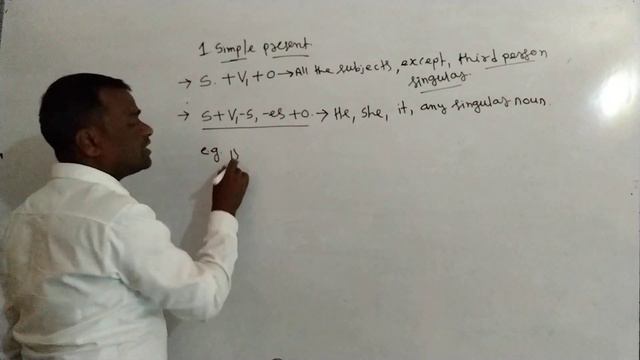 1 Simple present
→ S. + V₁ + O → All the subjects, except, third person
singular
→ S + V₁-s, -es + O. → He, She, it, any singular noun.
e.g.